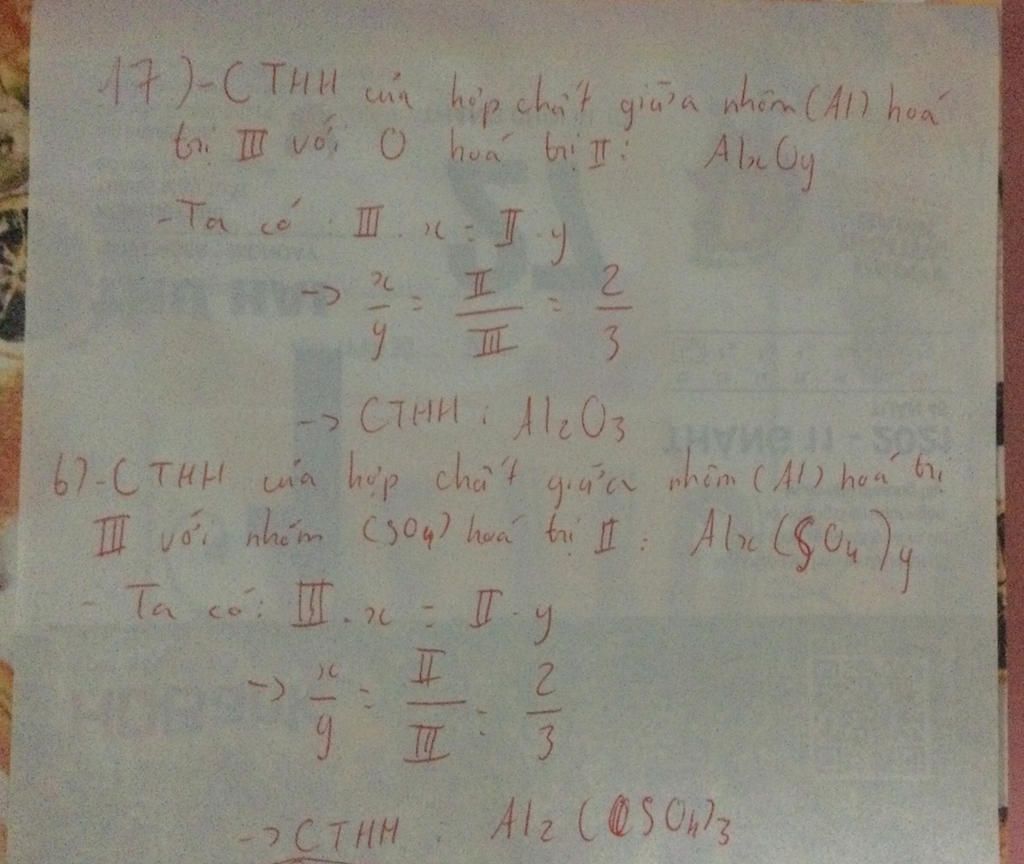 17)-CTHH của hợp chất giữa nhôm (Al) hoá
trị III với O hoá trị II: AlxOy
-Ta có: III.x = II.y
-> x/y = II/III = 2/3
-> CTHH: Al2O3
b)-CTHH của hợp chất giữa nhôm (Al) hoá trị
III với nhóm (SO4) hoá trị II: Alx(SO4)y
- Ta có: III.x = II.y
-> x/y = II/III = 2/3
-> CTHH: Al2(SO4)3
THÁNG 11 - 2021